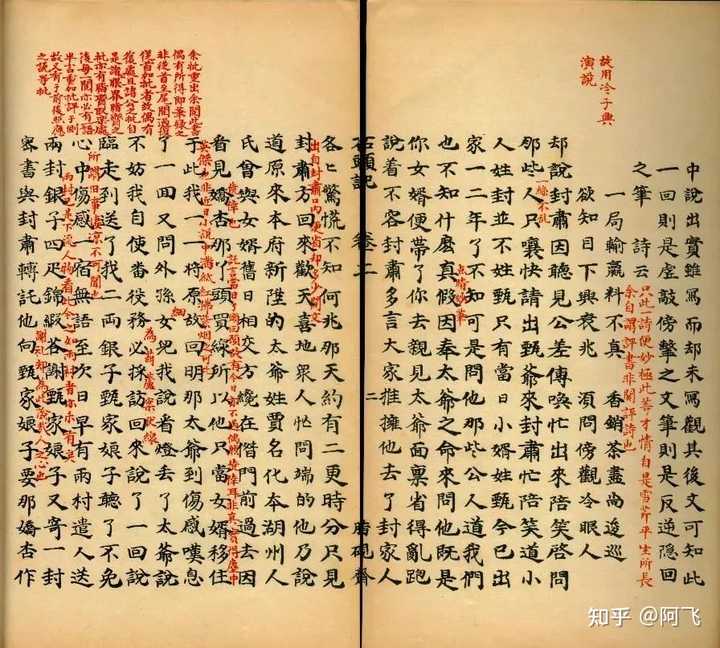 故用冷子興
演說
中說出實雖寫而却未寫觀其後文可知此
一回則是虛敲傍擊之文筆則是反逆隱回
之筆 詩云
只此一詩便妙極此等才情自是雪芹平生所長
余自謂評書非關評詩也
一局輸贏料不真 香銷茶盡尚逡巡
欲知目下興衰兆 須問傍觀冷眼人
却說封肅因聽見公差傳喚忙出來陪笑啓問
一絲不亂
那些人只嚷快請出甄爺來封肅忙陪笑道小
人姓封並不姓甄只有當日小婿姓甄今已出
家一二年了不知可是問他那些公人道我們
點睛妙筆
也不知什麼真假因奉太爺之命來問他既是
你女婿便帶了你去親見太爺面稟省得亂跑
說着不容封肅多言大家推擁他去了封家人
石頭記 卷二 二 脂硯齋
各〻驚慌不知何兆那天約有二更時分只見
出自封肅口內便省却多少閒文
封肅方回來歡天喜地衆人忙問端的他乃說
道原來本府新陞的太爺姓賈名化本湖州人
氏曾與女婿舊日相交方纔在偺門前過去因
僥倖也
託言當日丫頭回顧故有今日亦不過偶然僥倖耳非真實得塵中
英傑也非近日小說中滿紙紅拂紫烟之可比
看見嬌杏那丫頭買線所以他只當女婿移住
于此我一一將原故回明那太爺到傷感嘆息
細
了一回又問外孫女兒我說看燈丢了太爺說
為葫蘆案伏線
不妨我自使番役務必採訪回來說了一回話
臨走到送了我二兩銀子甄家娘子聽了不免
所謂舊事悽涼不可聞也
心中傷感一宿無語至次日早有雨村遣人送
雨村已是下流人物看此今之如雨村者亦未有矣
兩封銀子四疋錦緞答謝甄家娘子又寄一封
謝禮却為此險哉人之心也
密書與封肅轉託他向甄家娘子要那嬌杏作
余批重出余閱此書
偶有所得即筆錄之
非從首至尾閱過復
從首加批者故偶有
復處且諸公之批自
是諸公眼界脂齋之
批亦有脂齋取樂處
後每一閱亦必有一語
半言重加批評于側
故又有于前後照應
之說等批
知乎 @阿飞